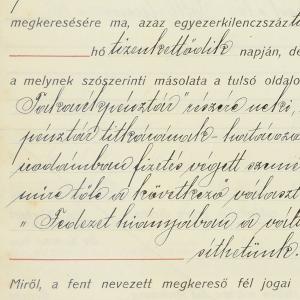 megkeresésére ma, azaz egyezerkilencszázt
hó tizenkettödik napján, de
a melynek szószerinti másolata a tulsó oldalo
Takarékpénztár" részére neki,
pénztár titkárának határoza
iradámban fizetés végett szeme
mire tőle a következő választ
„Fedezet hiányjában a vált
síthetünk.
Miről, a fent nevezett megkereső fél jogai